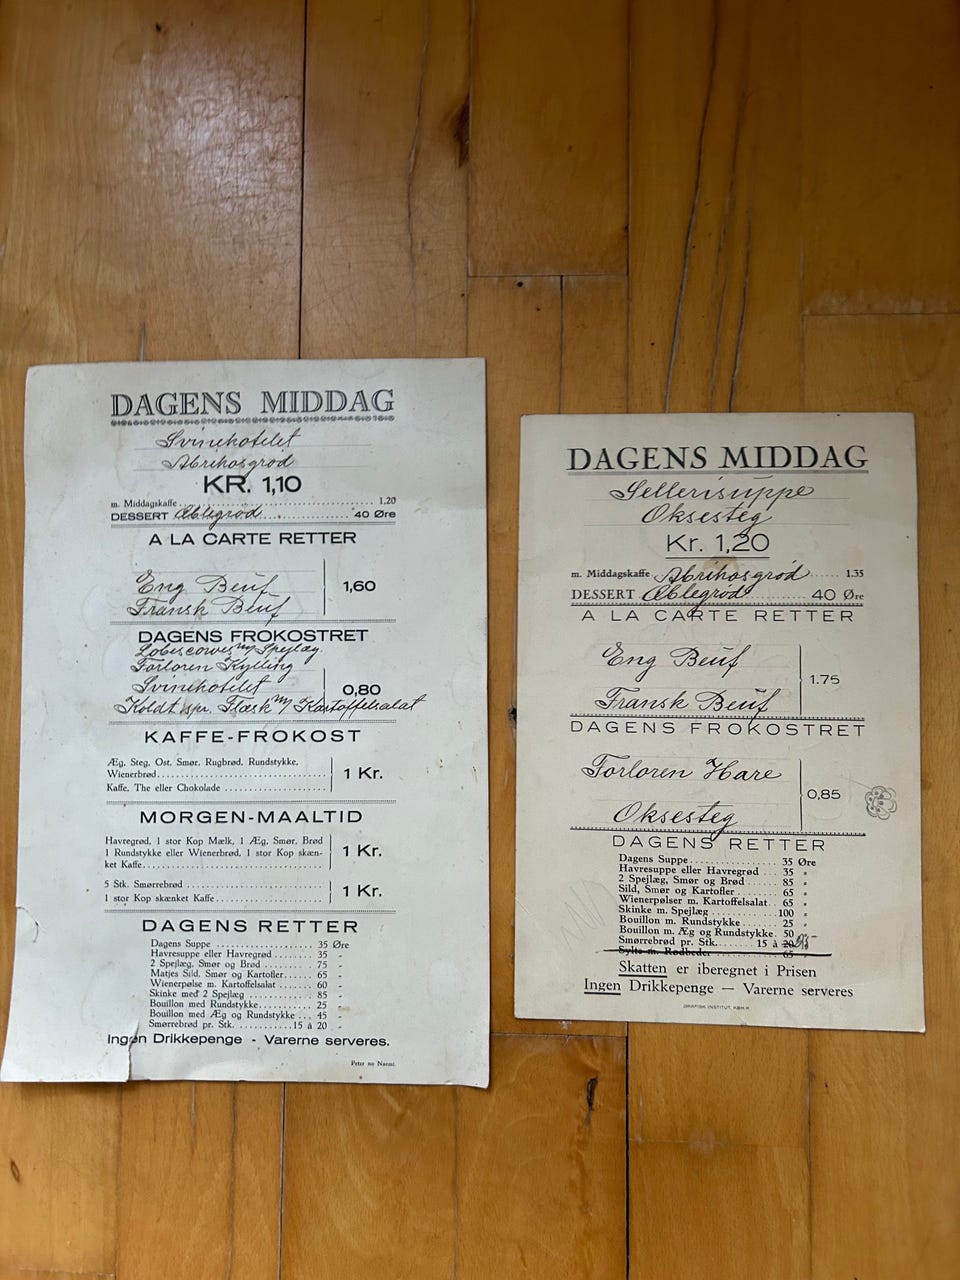 DAGENS MIDDAG
Svinekotelet
Abrikosgrød
KR. 1,10
m. Middagskaffe 1.20
DESSERT Æblegrød 40 Øre
A LA CARTE RETTER
Eng Beuf
Fransk Beuf
1,60
DAGENS FROKOSTRET
Lobescowes m/ Spejlæg
Forloren Kylling
Svinekotelet
0,80
Koldt spr. Flæsk m/ Kartoffelsalat
KAFFE-FROKOST
Æg, Steg, Ost, Smør, Rugbrød, Rundstykke,
Wienerbrød
1 Kr.
Kaffe, The eller Chokolade
MORGEN-MAALTID
Havregrød, 1 stor Kop Mælk, 1 Æg, Smør, Brød
1 Rundstykke eller Wienerbrød, 1 stor Kop skæn-
1 Kr.
ket Kaffe
5 Stk. Smørrebrød
1 Kr.
1 stor Kop skænket Kaffe
DAGENS RETTER
Dagens Suppe 35 Øre
Havresuppe eller Havregrød 35 -
2 Spejlæg, Smør og Brød 75 -
Matjes Sild, Smør og Kartofler 65 -
Wienerpølse m. Kartoffelsalat 60 -
Skinke med 2 Spejlæg 85 -
Bouillon med Rundstykke 25 -
Bouillon med Æg og Rundstykke 45 -
Smørrebrød pr. Stk. 15 à 20 -
Ingen Drikkepenge - Varerne serveres.
DAGENS MIDDAG
Sellerisuppe
Oksesteg
Kr. 1,20
m. Middagskaffe Abrikosgrød 1.35
DESSERT Æblegrød 40 Øre
A LA CARTE RETTER
Eng Beuf
1.75
Fransk Beuf
DAGENS FROKOSTRET
Forloren Hare
0,85
Oksesteg
DAGENS RETTER
Dagens Suppe 35 Øre
Havresuppe eller Havregrød 35 "
2 Spejlæg, Smør og Brød 85 "
Sild, Smør og Kartofler 65 "
Wienerpølser m. Kartoffelsalat 65 "
Skinke m. Spejlæg 100 "
Bouillon m. Rundstykke 25 "
Bouillon m. Æg og Rundstykke 50 "
Smørrebrød pr. Stk. 15 à 20
Sylte m. Rødbeder 65 "
Skatten er iberegnet i Prisen
Ingen Drikkepenge — Varerne serveres
GRAFISK INSTITUT, KBH. K